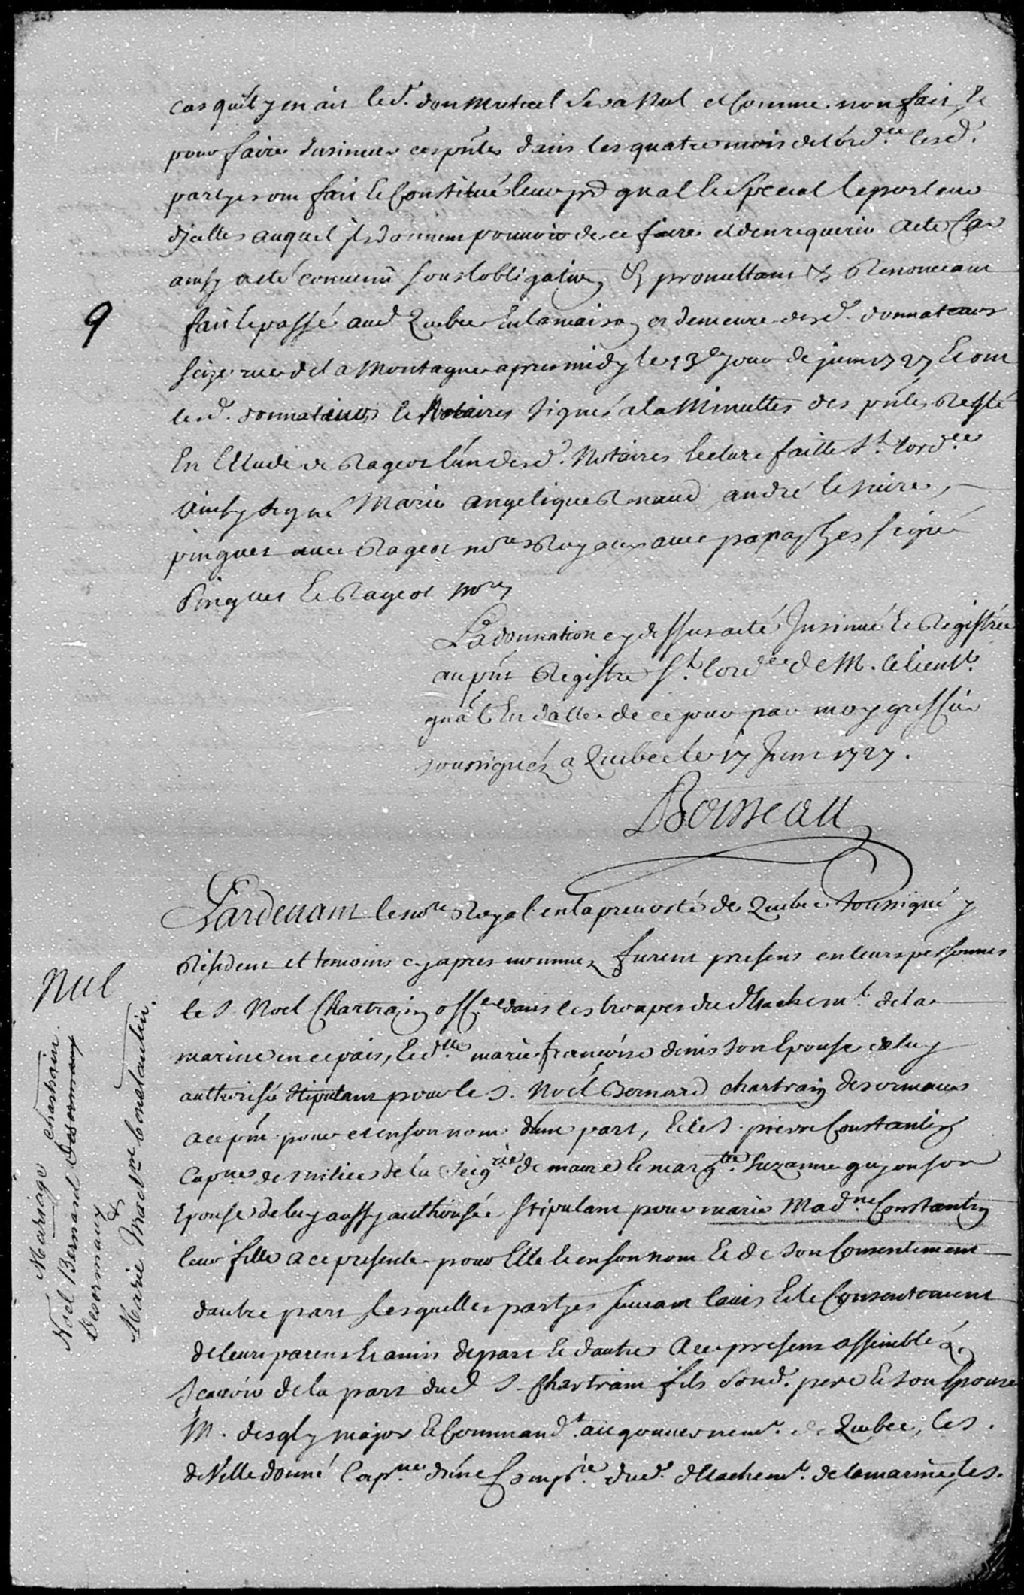 cas quil y en ait led. don Mutuel Sera Nul et Comme non fait, Et
pour faire Insinuer ces pntes dans les quatre mois de lord.ce lesd.
partyes ont fait et Constitué leur pr gnal et Special le porteur
dicelles auquel ils donnent pouvoir de ce faire et den requerir acte Car
ainsy a eté convenu sous lobligation & promettant & Renonceant
9
fait et passé aud Quebec En la maison et demeure desd. donnateurs
Seize rue de la Montagne apres midy le 13e Jour de juin 1727 Et ont
lesd. donnateurs et Notaires Signé a la Minutte des pntes Resté
En Etude de Rageot l'un desd. Notaires lecture faitte St. lord.ce
ainsy Signé Marie angelique Renaud, andré
pinguet avec Rageot nore Royaux avec paraphes signé
Pinguet Et Rageot nore
La donnation cy dessus a eté Insinué Et Registrée
au pnt Registre St. lord.ce de M. le lieut.
gnal En datte de ce jour par moy greffier
soussignés a Quebec le 17 Juin 1727.
Boisseau
Pardevant le nore Royal en la prevosté de Quebec Soussigné y
Resident et temoins cy apres nommez furent presens en leurs personnes
le S. Noel Chartrain offer dans les troupes du detachemt. de la
marine en ce pais, Et dlle marie francoise denis son Epouse de luy
authorisée Stipulans pour le S. Noël Bernard chartrain Desormeaux
a ce pnt pour et en son nom dune part, Et le S. pierre Constantin
Capne de milice de la Seigrie de maure Et margte. Suzanne guyon son
Epouse de luy aussy authorisée Stipulans pour marie Madne Constantin
leur fille a ce presente pour Elle Et en son nom Et de son Consentement
dautre part lesquelles partyes suivant lavis Et le Consentement
de leurs parens Et amis de part Et dautre a ce presens assemblés
Scavoir de la part dud S. Chartrain fils Sond. pere Et son Epouse
M. desgly major Et Command.t au gouvernemt. de Quebec, le S.
deVilledonné Capne dune Compie. dud. detachemt. de la marine, le S.
Nul
Mariage
Noël Bernard Chartrain
Desormeaux
&
Marie Madne Constantin.